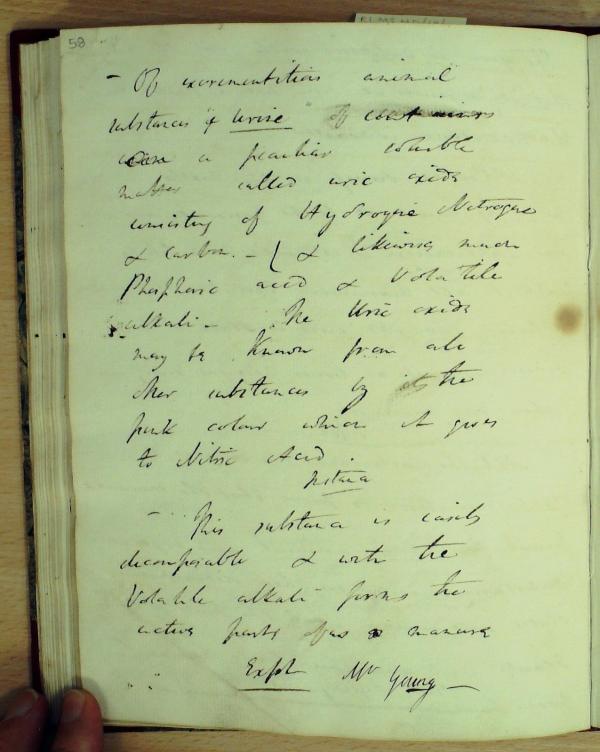 58
– Of excrementitious animal
substances of Urine contains
a peculiar soluble
matter called uric oxide
consisting of Hydrogene Nitrogene
& carbon. – ( & likewise much
Phosphoric acid & Volatile
alkali – The Uric oxide
may be known from all
other substances by the
pink colour which it gives
to Nitric Acid.
– This substance is easily
decomposable & with the
Volatile alkali forms the
active parts of as a manure
Expt Mr Young –